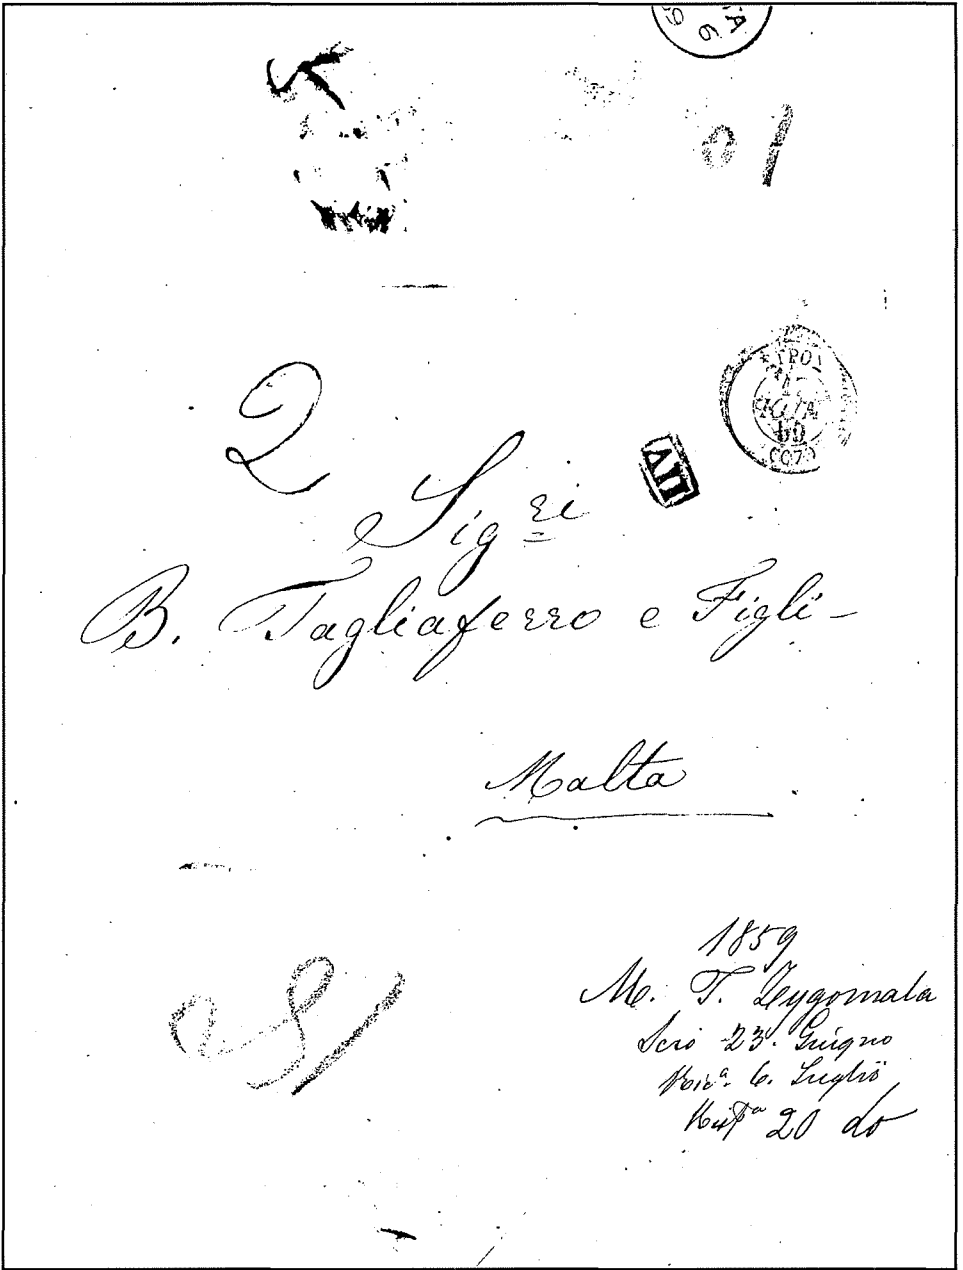 2
Sigri
B. Tagliaferro e Figli -
Malta
1859
M. T. Zygomala
Scio 23. Giugno
6. Luglio
20 do